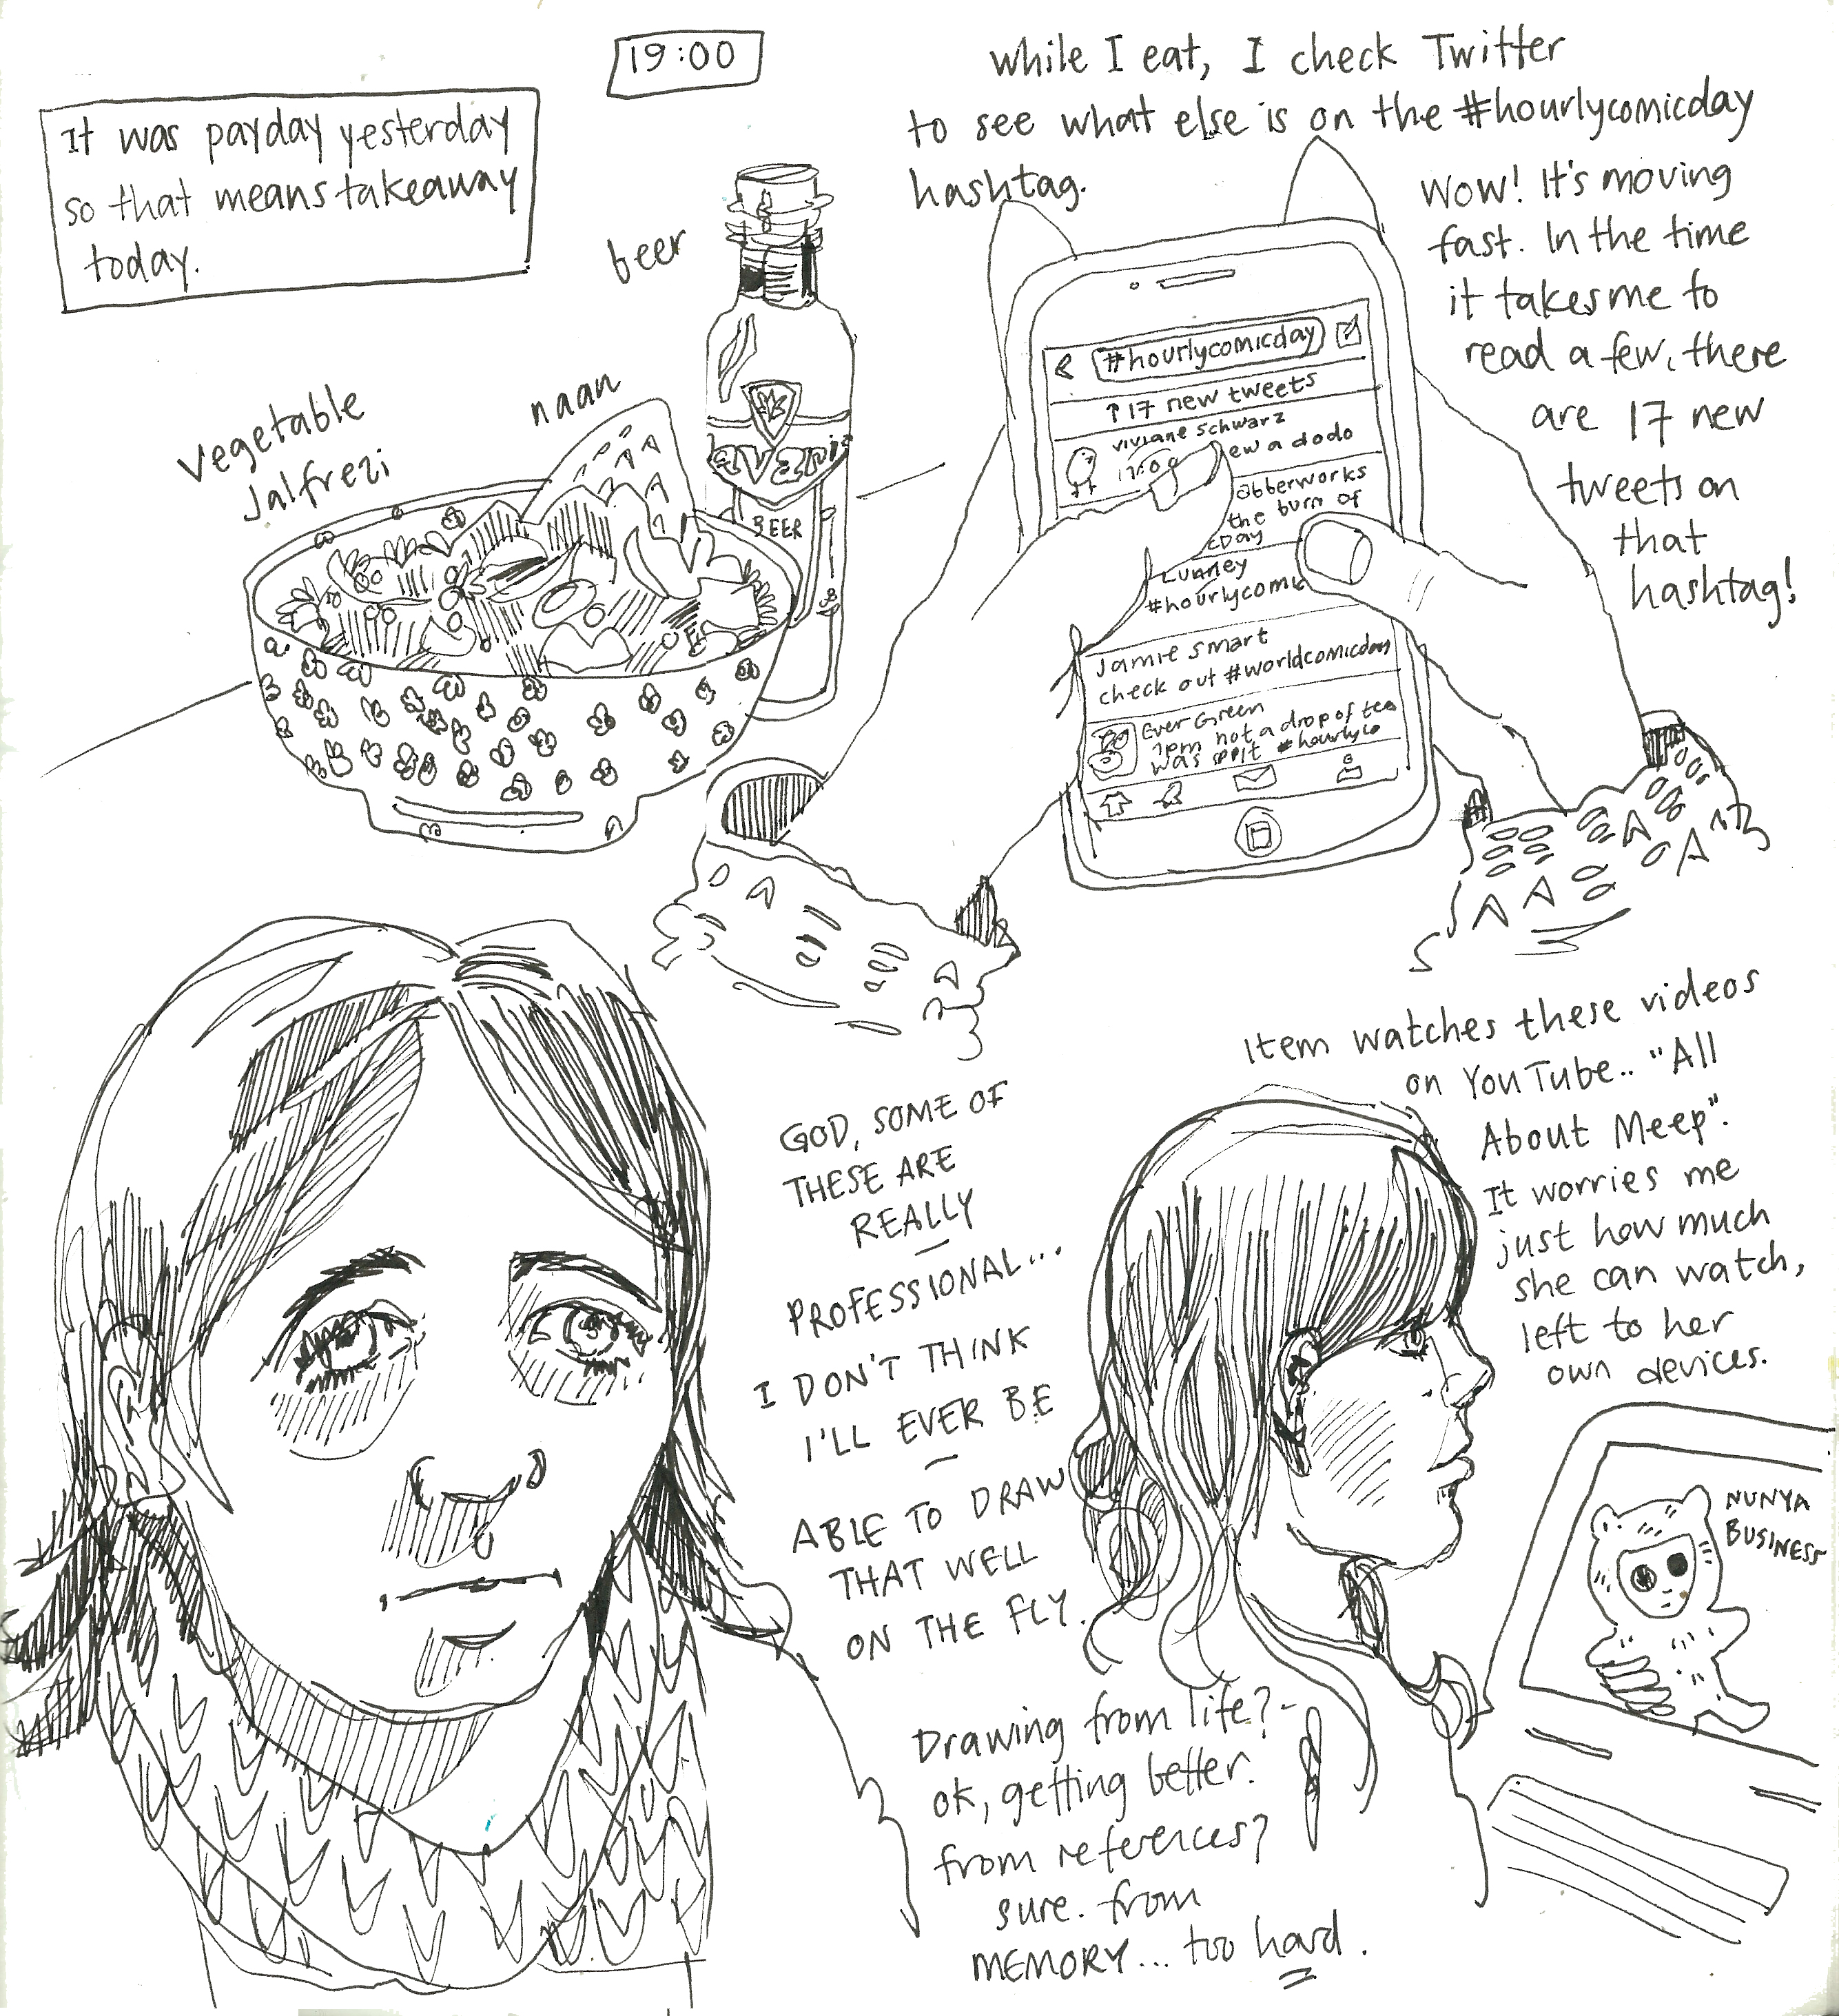 19:00
It was payday yesterday
so that means takeaway
today.
beer
vegetable
jalfrezi
naan
BEER
While I eat, I check Twitter
to see what else is on the #hourlycomicday
hashtag.
Wow! It's moving
fast. In the time
it takes me to
read a few, there
are 17 new
tweets on
that
hashtag!
#hourlycomicday
↑17 new tweets
Viviane Schwarz
ew a dodo
abberworks
the burn of
cday
Lunney
#hourlycomic
Jamie Smart
check out #worldcomicday
Ever Green
1pm not a drop of tea
was spilt #hourlyco
GOD, SOME OF
THESE ARE
REALLY
PROFESSIONAL...
I DON'T THINK
I'LL EVER BE
ABLE TO DRAW
THAT WELL
ON THE FLY.
Item watches these videos
on YouTube.. "All
About Meep".
It worries me
just how much
she can watch,
left to her
own devices.
NUNYA
BUSINESS
Drawing from life?-
ok, getting better.
from references?
sure. from
MEMORY... too hard.